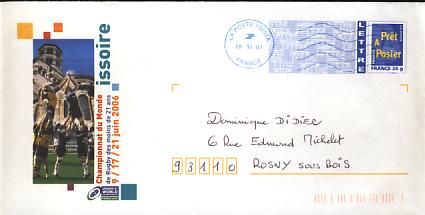 LA POSTE
28-12-07
FRANCE
LETTRE
Prêt
A
Poster
FRANCE 20 g
issoire
Championnat du Monde
de Rugby des moins de 21 ans
9 / 17 / 21 juin 2006
WORLD
Dominique DiDiEC
6 Rue Edmund Michelet
93110 ROSNY SOUS BOIS